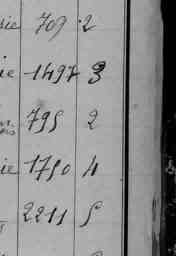 sie 709 2
ie 1497 3
795 2
ie 1750 4
2211 5